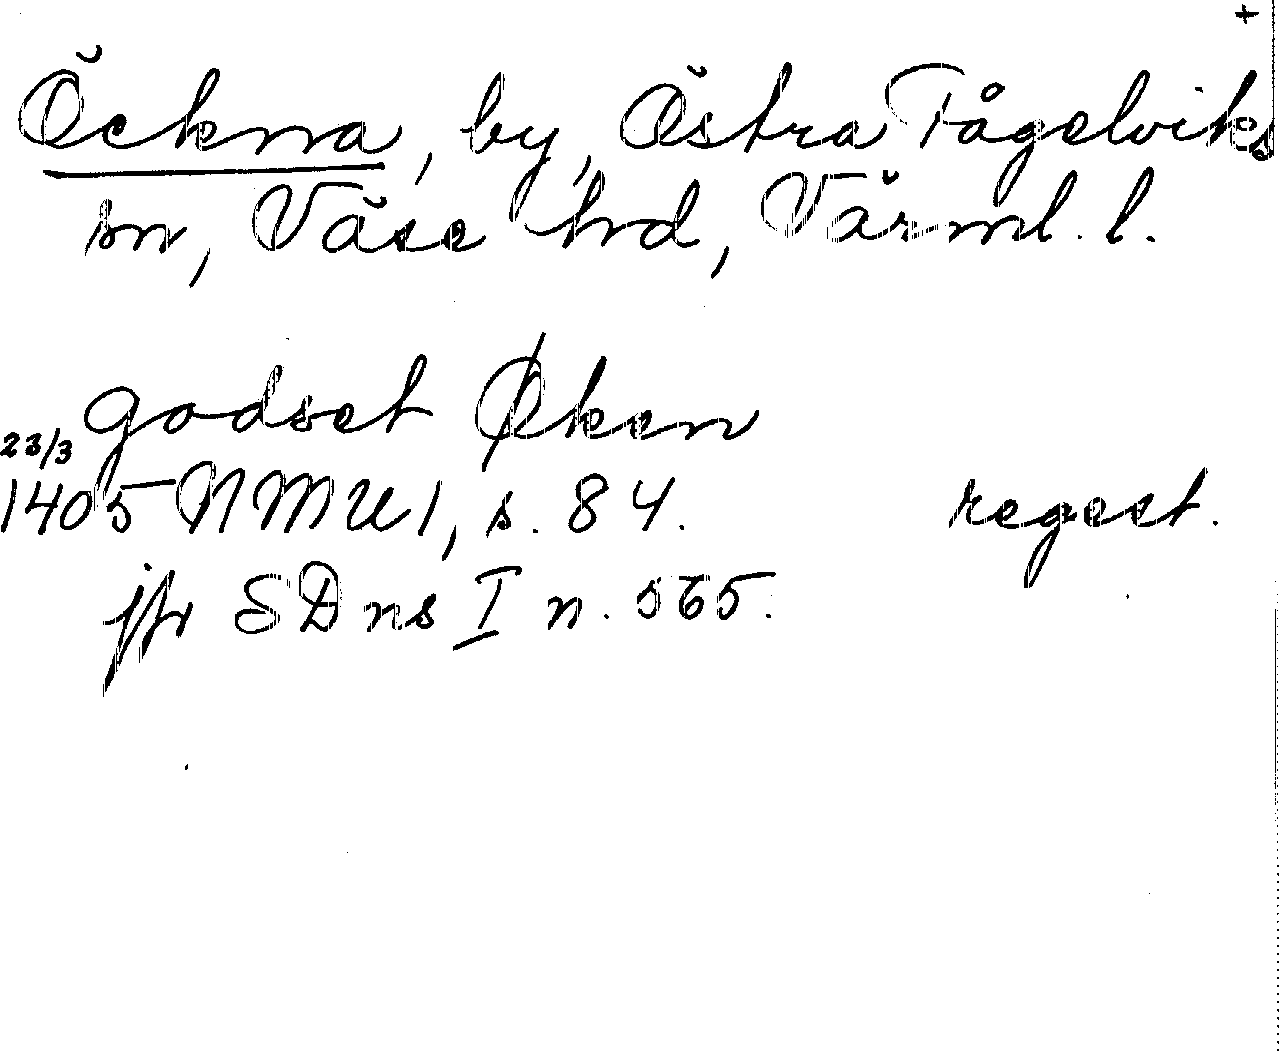 +
Öckna, by, Östra Fågelviks
sn, Väse hd, Värml. l.
godset Øken
23/3
1405 NMU 1, s. 84. regest.
jfr SD ns I n. 565.